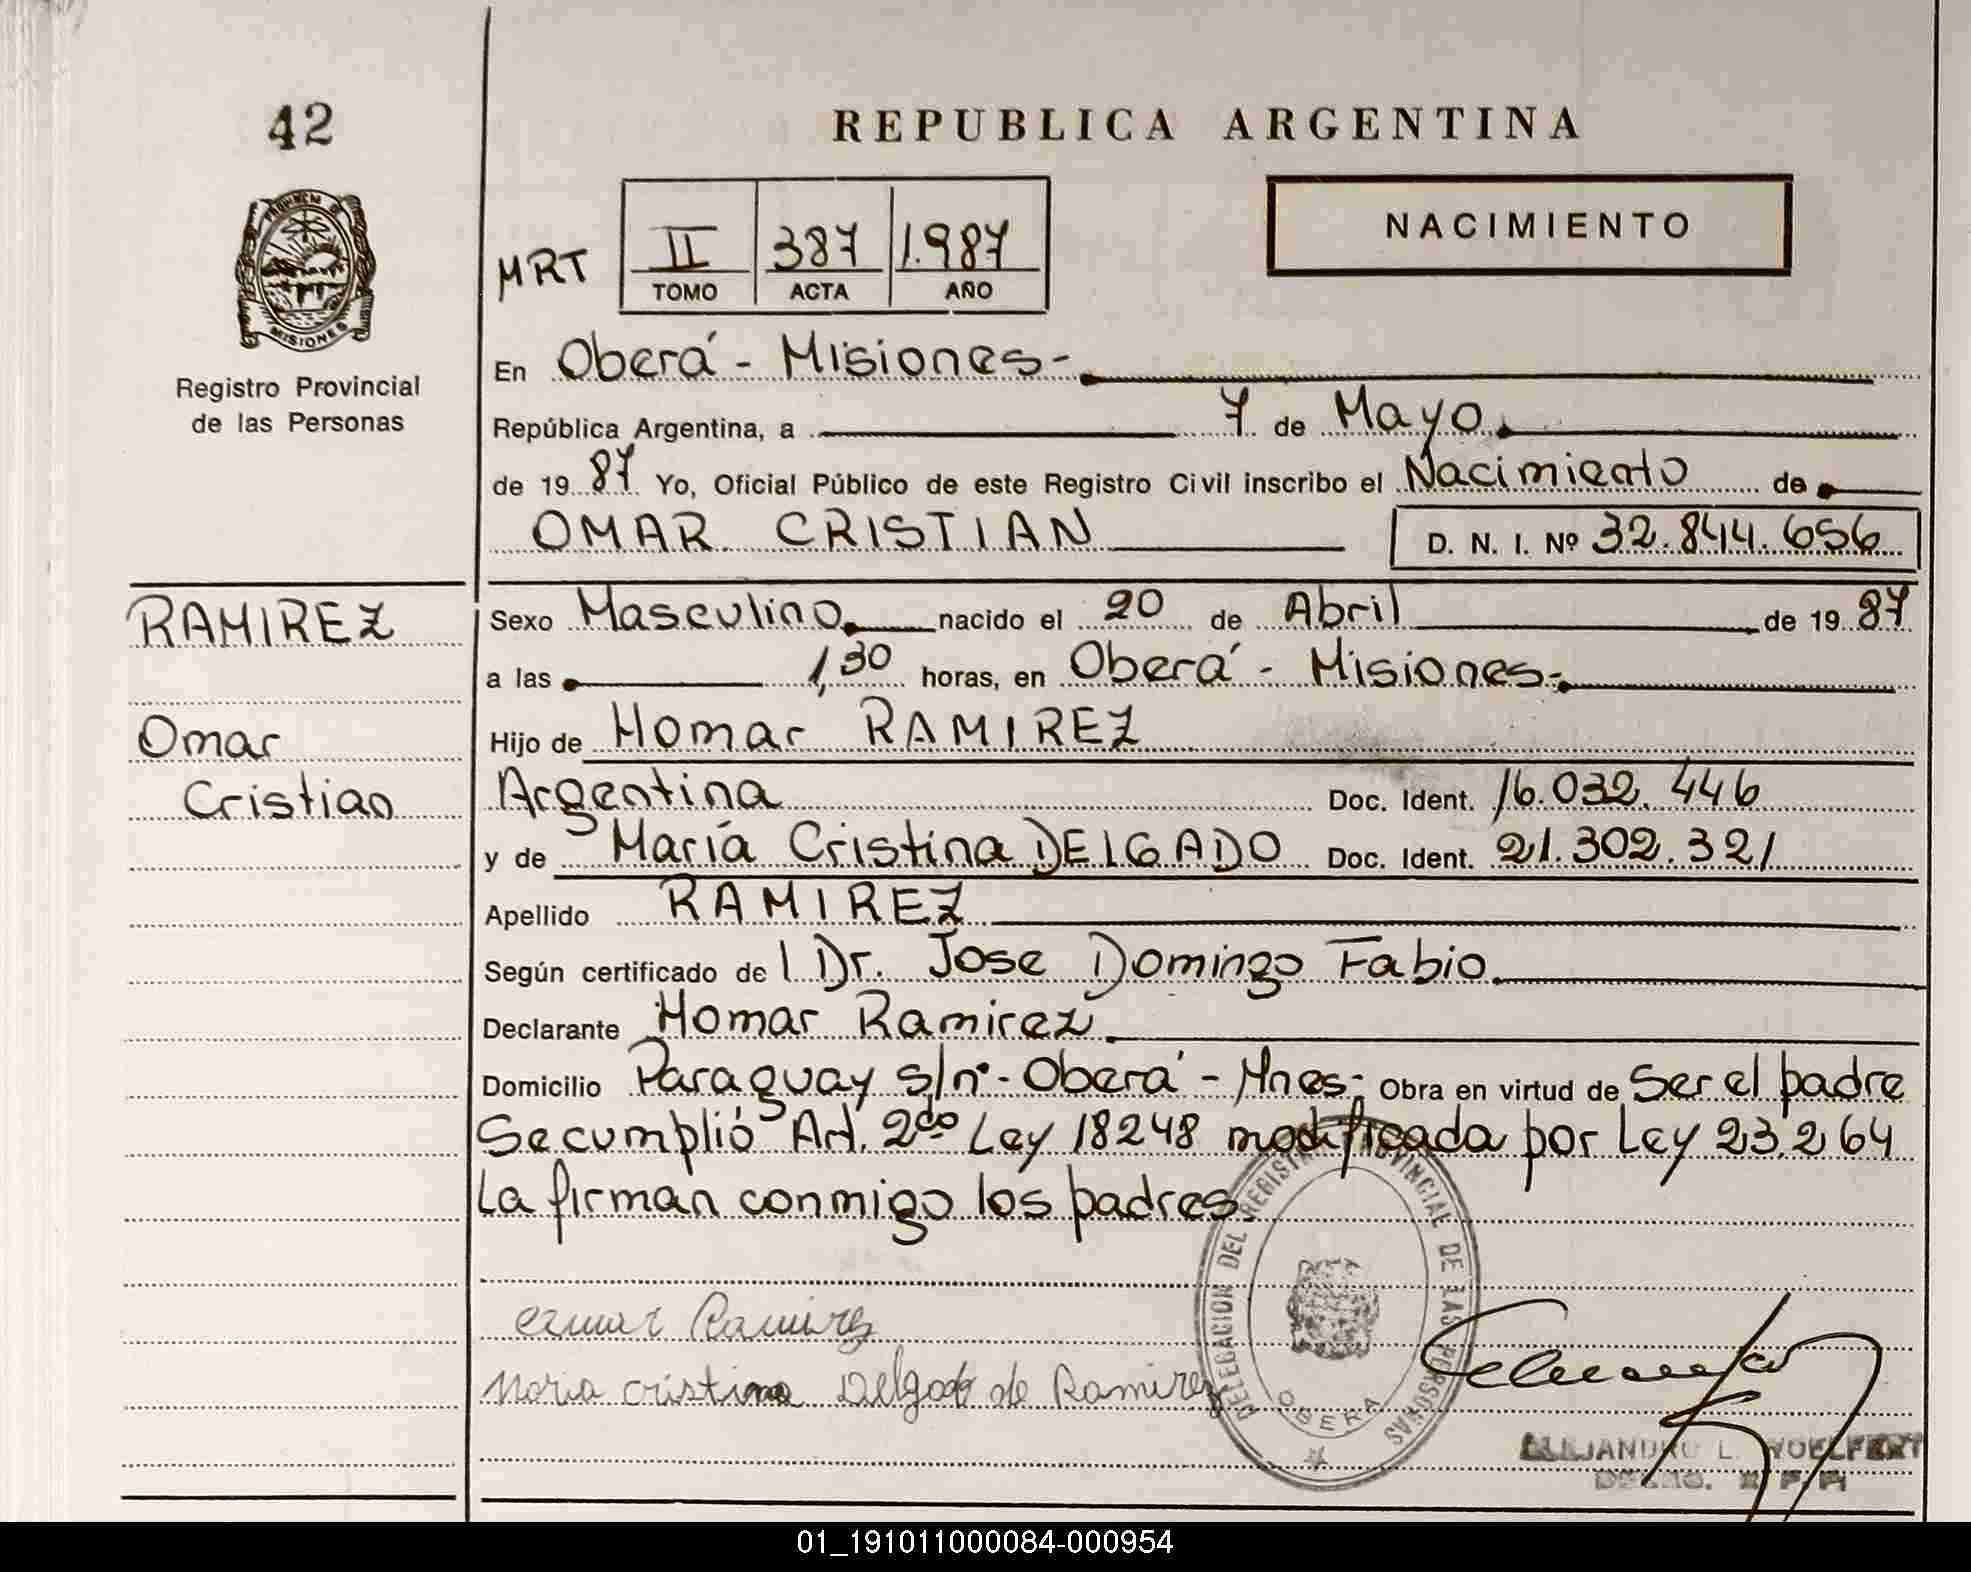 42
REPUBLICA ARGENTINA
PROVINCIA DE
MISIONES
Registro Provincial
de las Personas
NACIMIENTO
MRT
II 387 1.987
TOMO ACTA AÑO
En Oberá - Misiones-
República Argentina, a 7 de Mayo
de 19 87 Yo, Oficial Público de este Registro Civil inscribo el Nacimiento de
OMAR CRISTIAN D. N. I. Nº 32.844.656
RAMIREZ
Omar
Cristian
Sexo Masculino nacido el 20 de Abril de 19 87
a las 1,30 horas, en Oberá - Misiones-
Hijo de Homar RAMIREZ
Argentina Doc. Ident. 16.032.446
y de María Cristina DELGADO Doc. Ident. 21.302.321
Apellido RAMIREZ
Según certificado de Dr. Jose Domingo Fabio
Declarante Homar Ramirez
Domicilio Paraguay s/nº - Oberá - Mnes- Obra en virtud de Ser el padre
Se cumplió Art. 2do Ley 18248 modificada por Ley 23.264
La firman conmigo los padres.
Ramirez
Maria cristina Delgado de Ramirez
DELEGACION DEL REGISTRO PROVINCIAL DE LAS PERSONAS
OBERA
ALEJANDRO L. WOELFERT
01_191011000084-000954